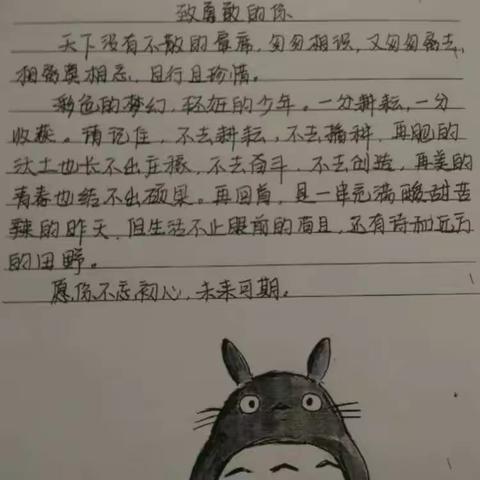 致勇敢的你
天下没有不散的宴席,匆匆相识,又匆匆离去,
相离莫相忘,且行且珍惜。
彩色的梦幻,矫好的少年。一分耕耘,一分
收获。请记住,不去耕耘,不去播种,再肥的
沃土也长不出庄稼,不去奋斗,不去创造,再美的
青春也结不出硕果。再回首,是一串充满酸甜苦
辣的昨天,但生活不止眼前的苟且,还有诗和远方
的田野。
愿你不忘初心,未来可期。